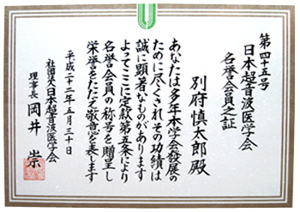 第四十五号
日本超音波医学会
名誉会員之証
別府慎太郎殿
あなたは多年本学会発展の
ために尽くされその功績は
誠に顕著なものがあります
よってここに定款第五条により
名誉会員の称号を贈呈し
栄誉をたたえ敬意を表します
平成二十二年五月三十日
社団法人日本超音波医学会
理事長 岡井 崇